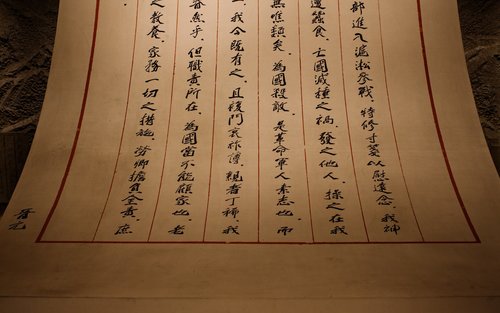 部進入滬淞參戰，特修寸箋以慰遠念。我神
遭蠶食，亡國滅種之禍，發之他人，操之在我
無噍類矣。為國殺敵，是革命軍人素志也；而
，我今既有之，且復門衰祚薄，親者丁稀，我
眷然乎，但職責所在，為國當不能顧家也。老
之教養，家務一切之措施，勞卿擔負全責，庶
晉元